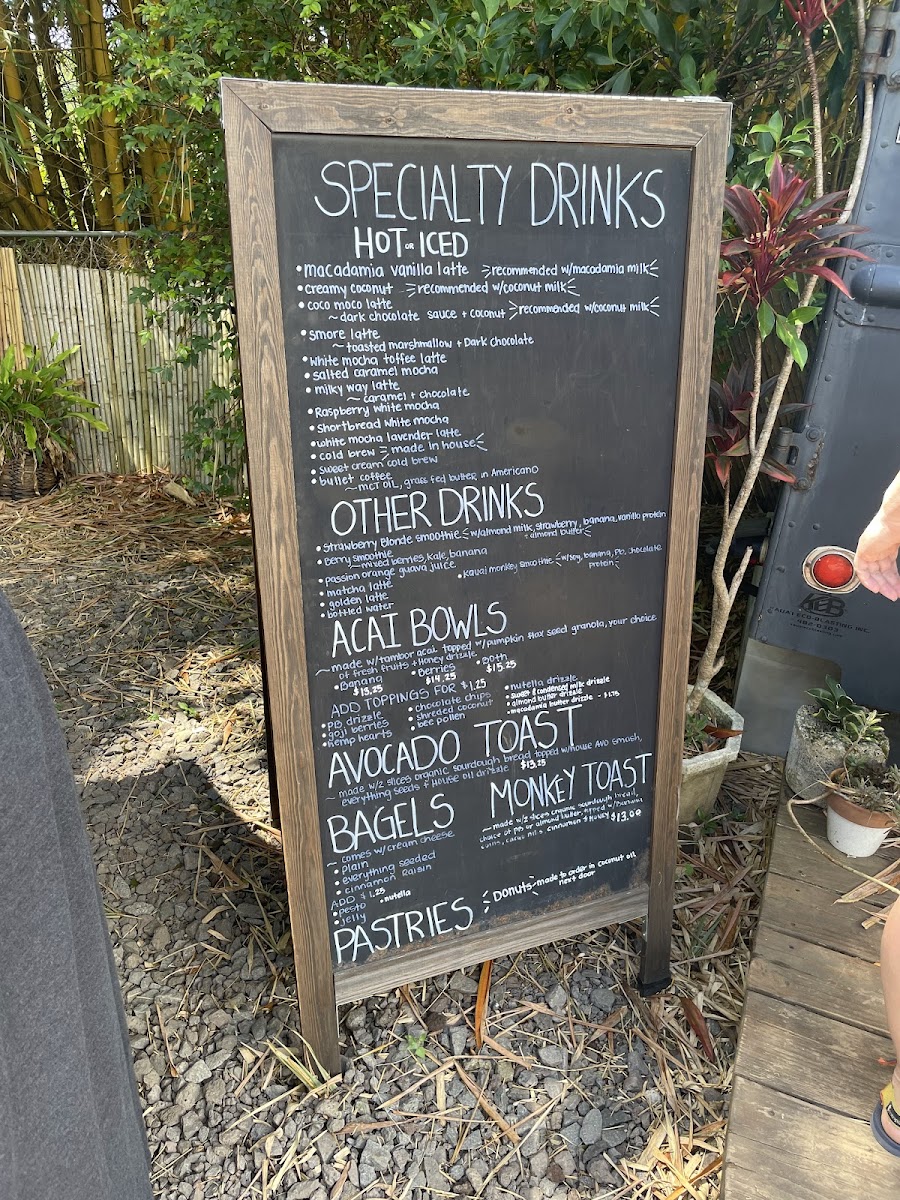 SPECIALTY DRINKS
HOT OR ICED
• macadamia vanilla latte >recommended w/macadamia milk<
• creamy coconut >recommended w/coconut milk<
• coco moco latte
~ dark chocolate sauce + coconut >recommended w/coconut milk<
• smore latte
~ toasted marshmallow + Dark chocolate
• white mocha toffee latte
• salted caramel mocha
• milky way latte
~ caramel + chocolate
• Raspberry white mocha
• Shortbread white mocha
• white mocha lavender latte
• cold brew >made in house<
• sweet cream cold brew
• bullet coffee
~ MCT OIL, grass fed butter, in Americano
OTHER DRINKS
• Strawberry Blonde smoothie w/almond milk, strawberry, banana, vanilla protein
+ almond butter
• Berry smoothie
~ mixed berries, kale, banana
• passion orange guava juice
• Kauai monkey smoothie w/soy, banana, PB, chocolate
protein
• matcha latte
• golden latte
• bottled water
ACAI BOWLS
~ made w/tambor acai topped w/pumpkin flax seed granola, your choice
of fresh fruits + Honey drizzle
• Banana • Berries • Both
$13.25 $14.25 $15.25
ADD TOPPINGS FOR $1.25
• PB drizzle • chocolate chips • nutella drizzle
• goji berries • shreded coconut • sweet & condensed milk drizzle
• hemp hearts • bee pollen • almond butter drizzle
• macadamia butter drizzle - $1.75
AVOCADO TOAST
~ made w/2 slices organic sourdough bread topped w/house AVO smash,
everything seeds + House oil drizzle $13.25
BAGELS
~ comes w/cream cheese
• plain
• everything seeded
• cinnamon raisin
ADD $1.25
• pesto • nutella
• jelly
MONKEY TOAST
~ made w/2 slices organic sourdough bread,
choice of PB or almond butter, topped w/Banana
coins, cacao nibs, cinnamon & Honey $13.00
PASTRIES
Donuts ~ made to order in coconut oil
next door
KEB
KAUAI ECO-BLASTING INC.